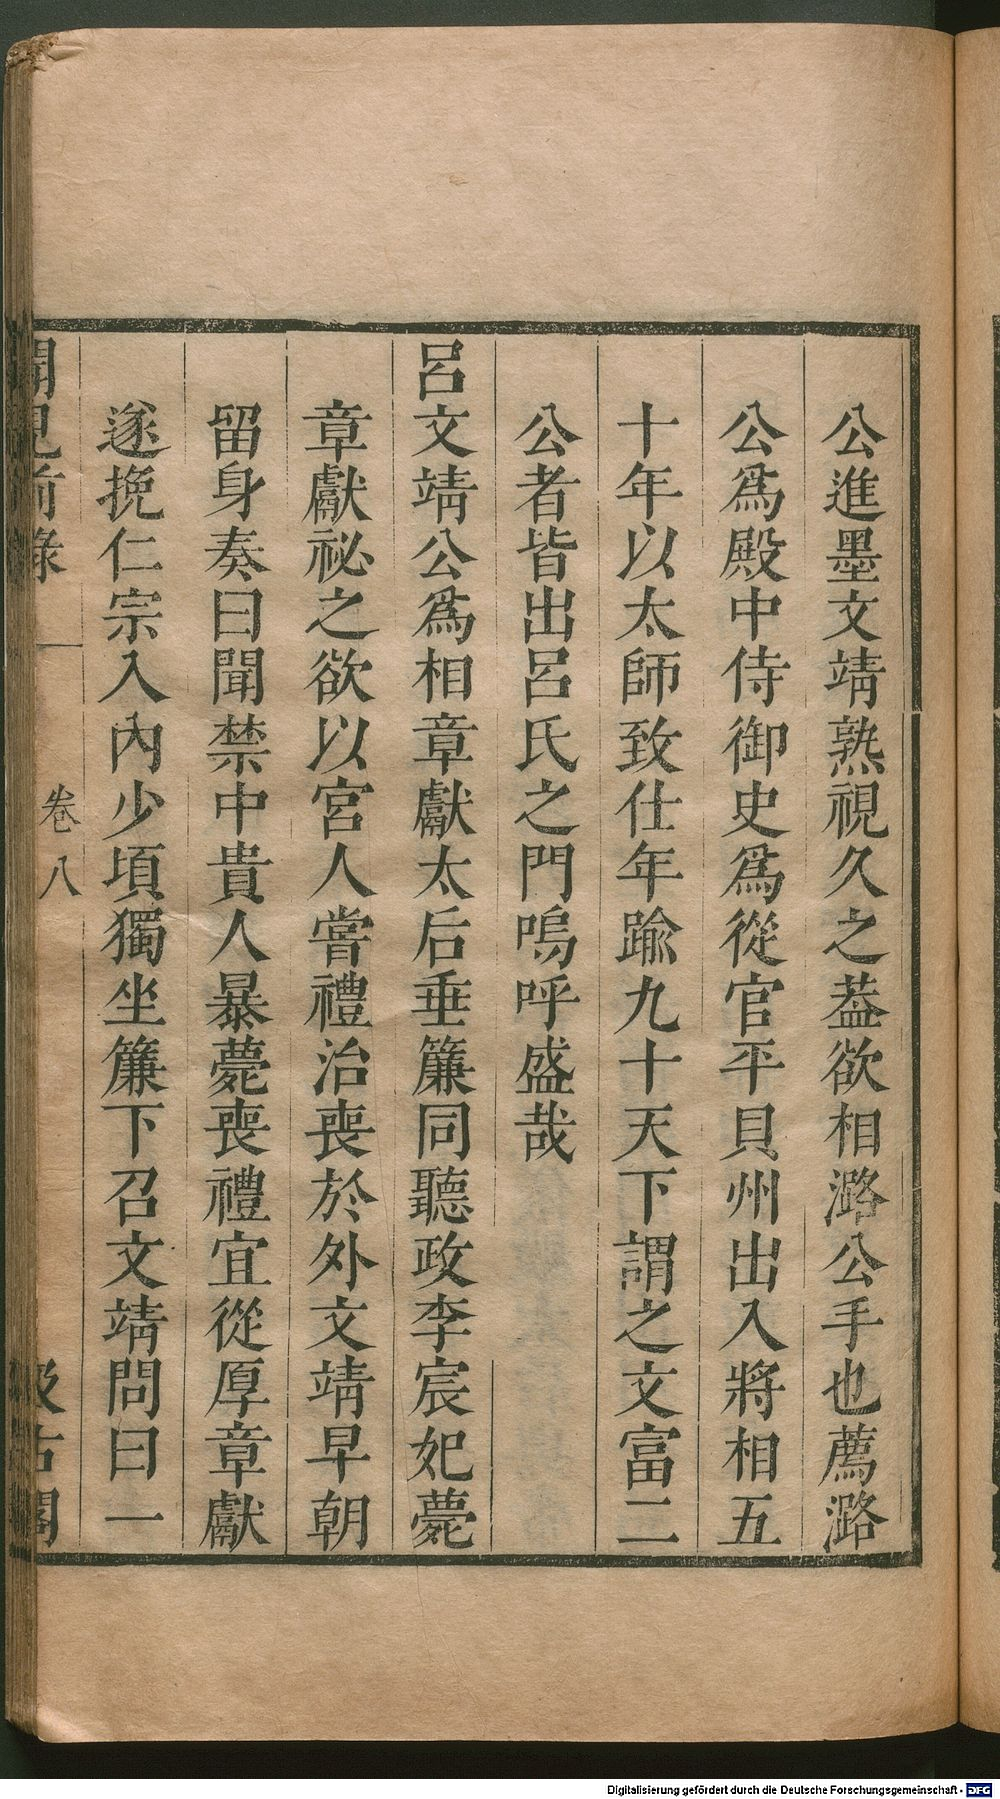 公進墨文靖熟視久之葢欲相潞公手也薦潞
公爲殿中侍御史爲從官平貝州出入將相五
十年以太師致仕年踰九十天下謂之文富二
公者皆出呂氏之門嗚呼盛哉
呂文靖公爲相章獻太后垂簾同聽政李宸妃薨
章獻祕之欲以宮人嘗禮治喪於外文靖早朝
留身奏曰聞禁中貴人暴薨喪禮宜從厚章獻
遂挽仁宗入內少頃獨坐簾下召文靖問曰一
聞見前錄 卷八 汲古閣
Digitalisierung gefördert durch die Deutsche Forschungsgemeinschaft - DFG